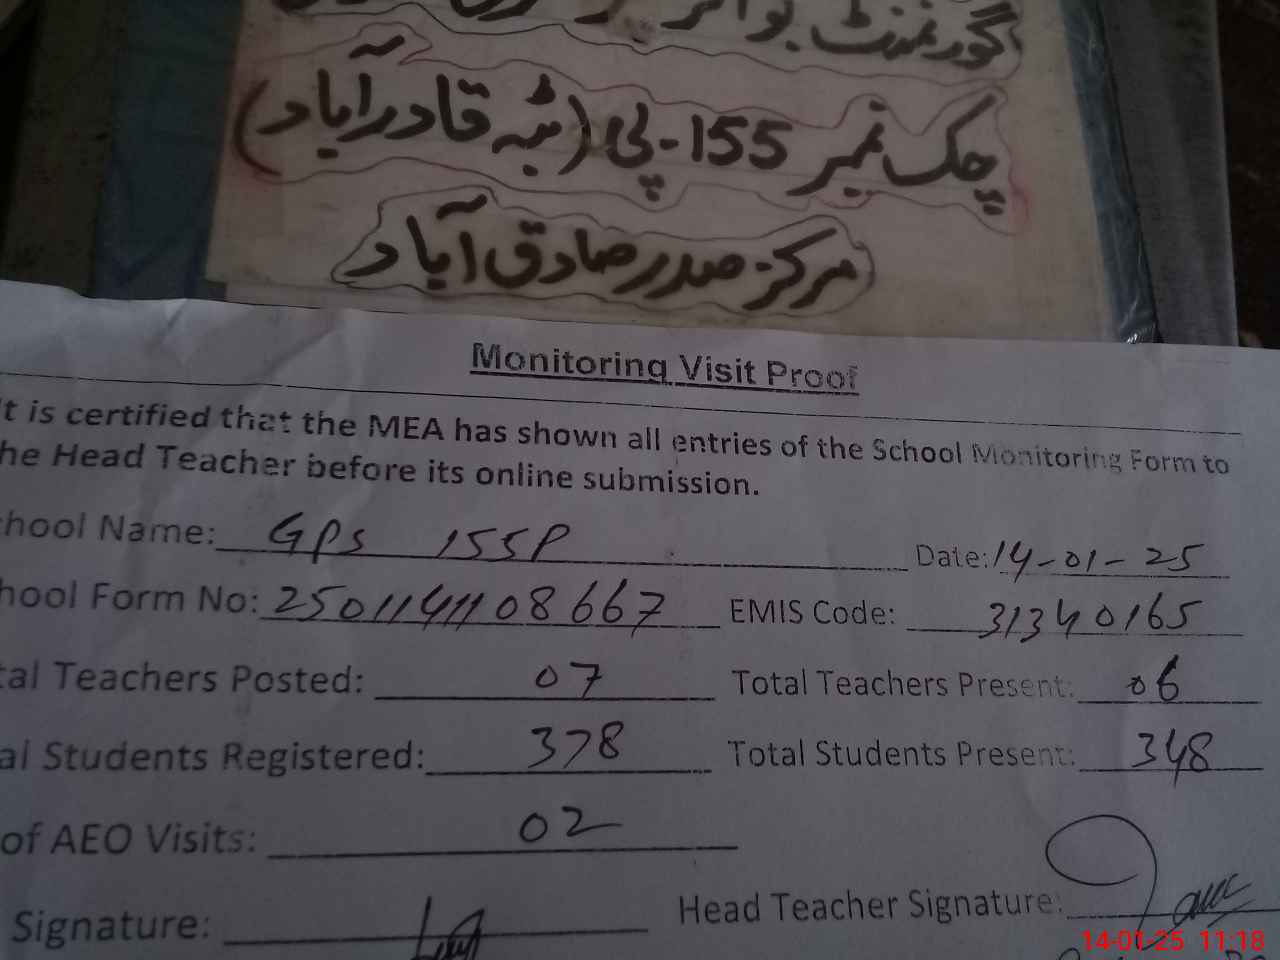 گورنمنٹ بوائز
چک نمبر 155-پی (ٹبہ قادرآباد)
مرکز صدر صادق آباد
Monitoring Visit Proof
It is certified that the MEA has shown all entries of the School Monitoring Form to
he Head Teacher before its online submission.
chool Name: GPS 155P Date: 14-01-25
hool Form No: 2501141108667 EMIS Code: 31340165
tal Teachers Posted: 07 Total Teachers Present: 06
al Students Registered: 378 Total Students Present: 348
of AEO Visits: 02
Signature: Head Teacher Signature:
14-01-25 11:18